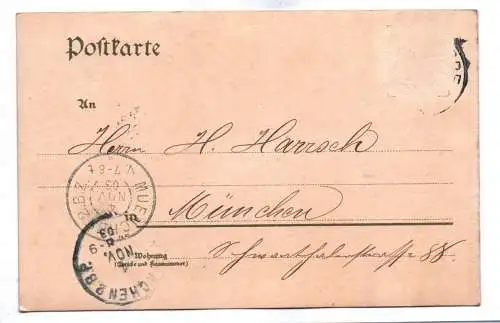 Postkarte
An
Herrn H. Harrsch
München
Wohnung
(Straße und Hausnummer)
Schwanthalerstrasse 88
MUE
B.Z.
NOV
03
V.7-8
8-9
NOV.
03
CHEN 2 B.P.